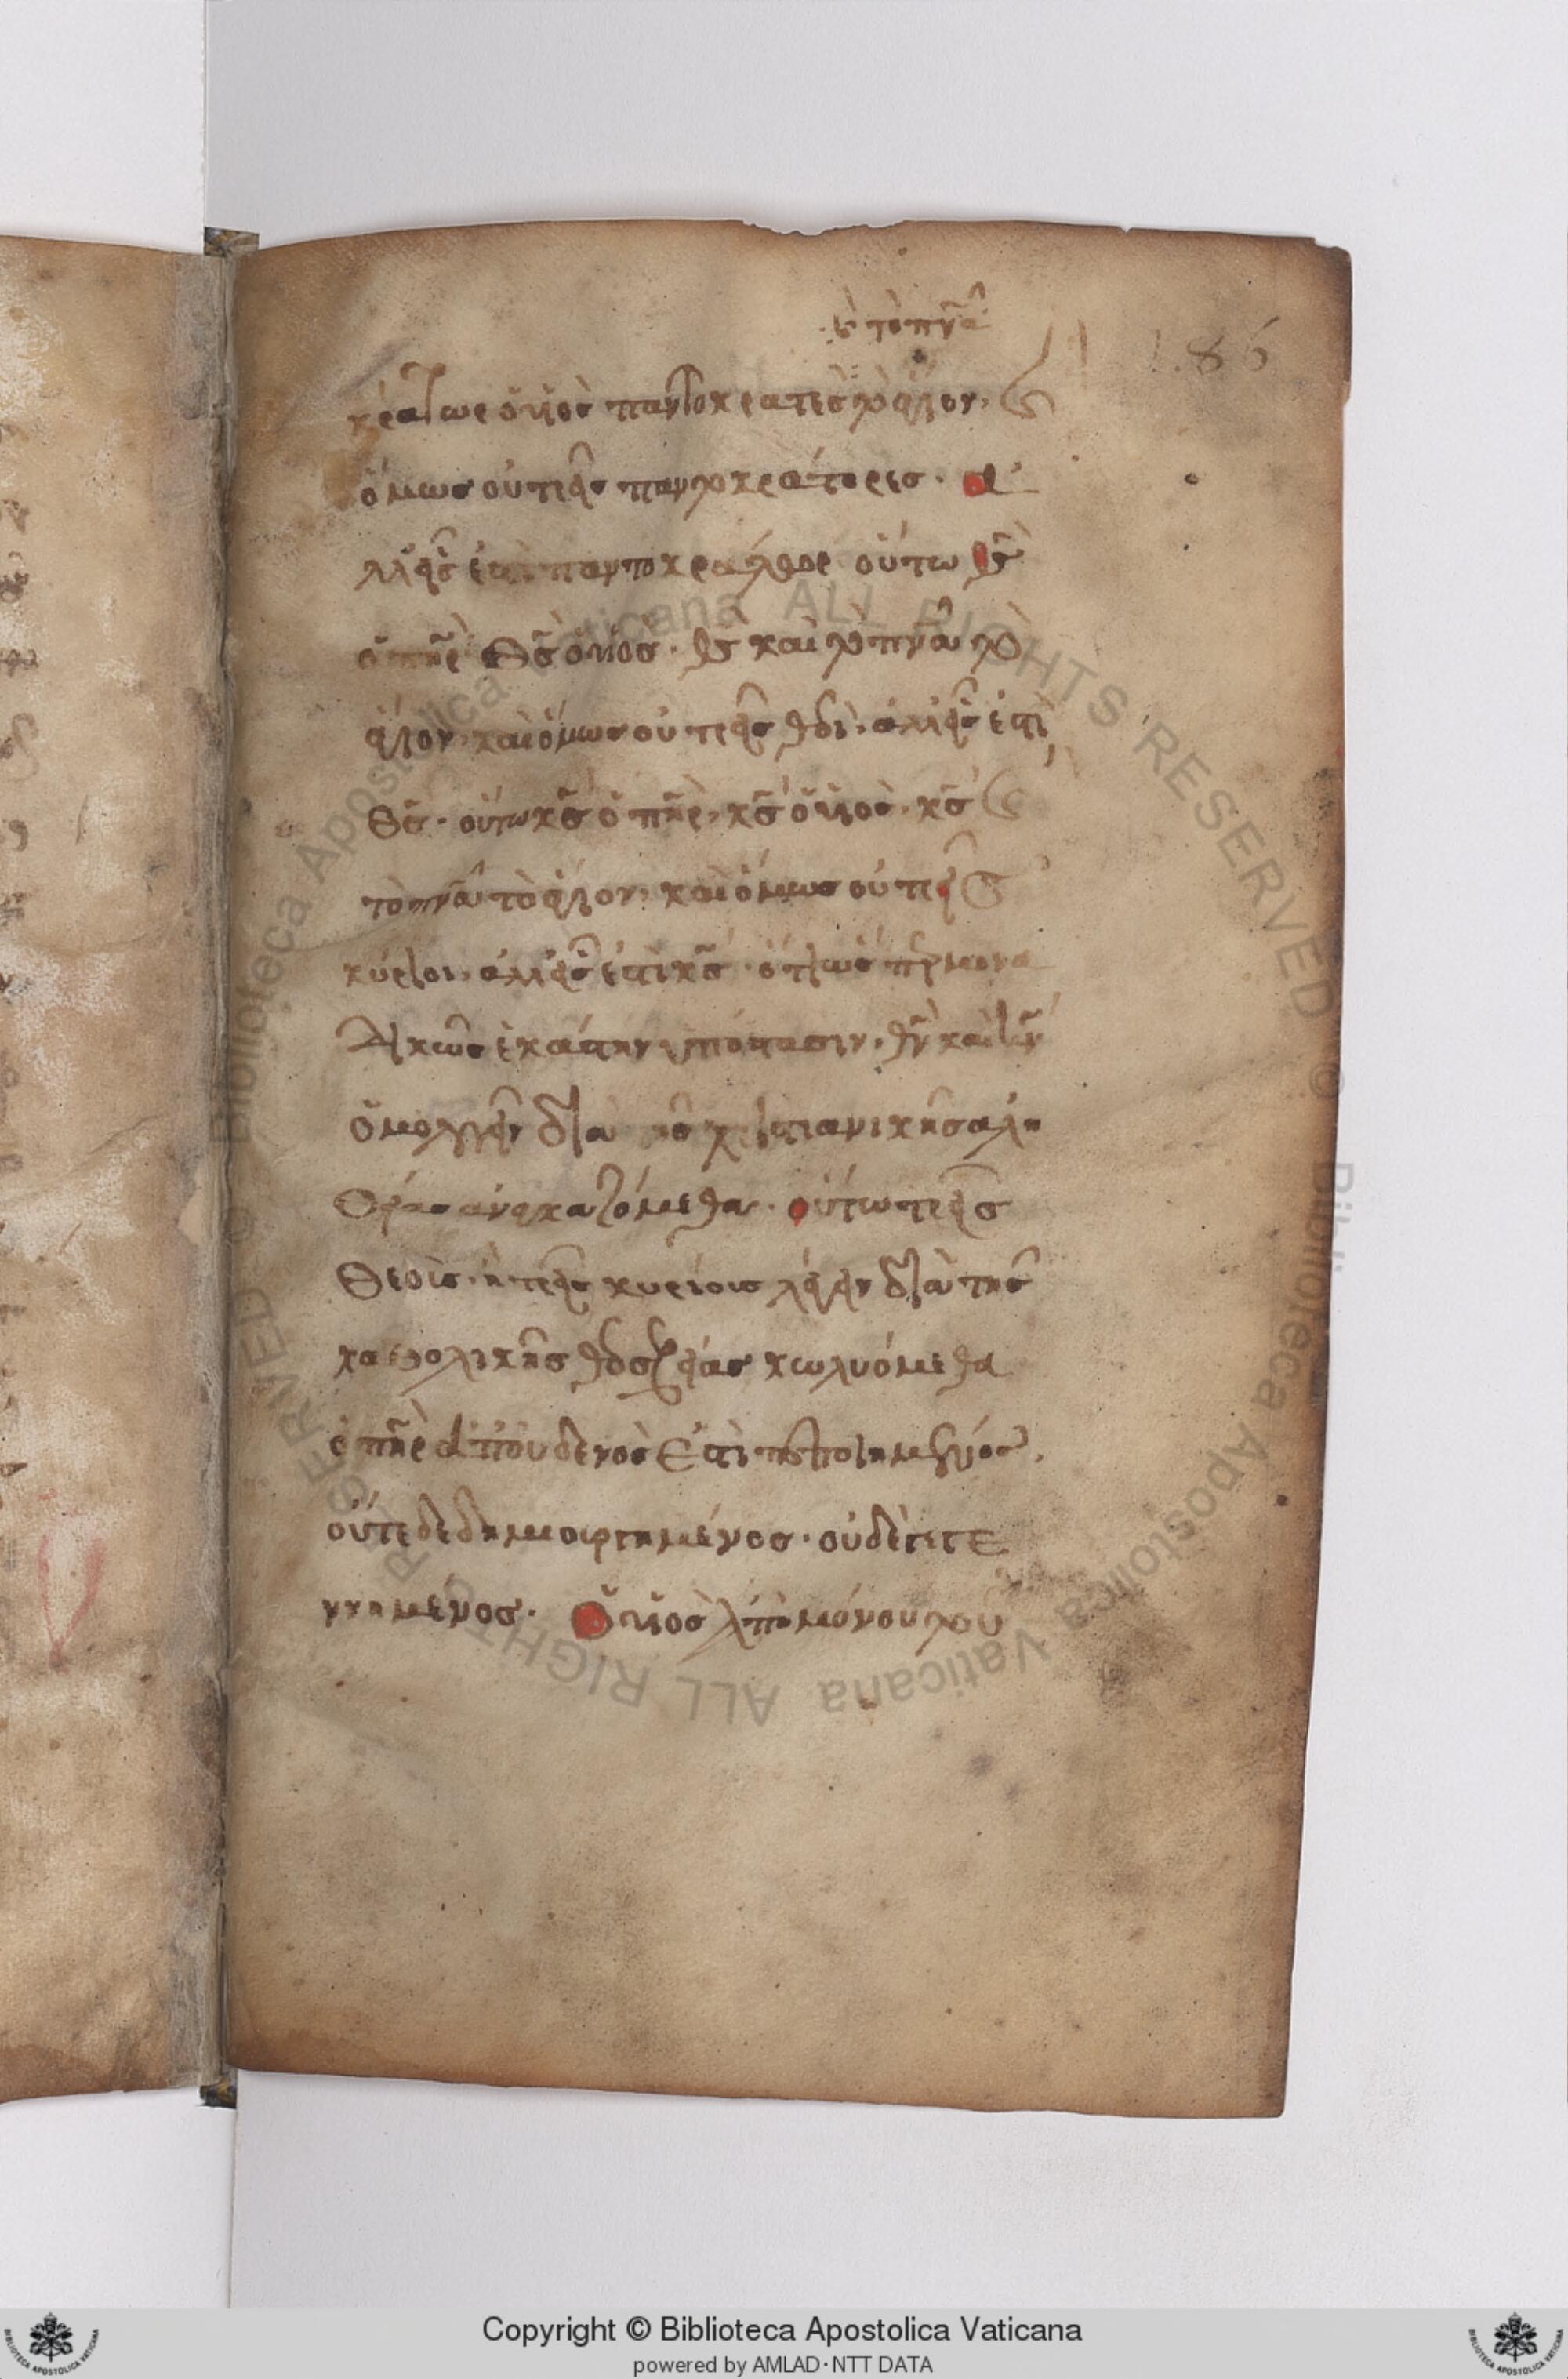 κ(αὶ) τὸ πν̅α̅
186
κράτωρ ὁ υἱὸς παντοκρατὲς τὸ ἅγιον· κ(αὶ)
ὅμως οὐ τρεῖς παντοκράτορες· ἀ
λλ' εἷς ἐστὶ παντοκράτορ οὕτω θ̅ς̅
ὁ π̅η̅ρ̅ θ̅ς̅ ὁ υἱὸς· θ̅ς̅ καὶ τὸ πν̅α̅ τὸ
ἅγιον· καὶ ὅμως οὐ τρεῖς θεοὶ· ἀλλ' εἷς ἐστὶ
θ̅ς̅· οὕτω κ̅ς̅ ὁ π̅η̅ρ̅· κ̅ς̅ ὁ υἱὸς· κ̅ς̅ κ(αὶ)
τὸ πν̅α̅ τὸ ἅγιον· καὶ ὅμως οὐ τρεῖς
κύριοι· ἀλλ' εἷς ἐστὶ κ̅ς̅· ὅτι ὡς μονα
δικῶς ἑκάστην ὑπόστασιν· θ̅ν̅ καὶ κ̅ν̅
ὁμολογεῖν διὰ τῆς χριστιανικῆς ἀλη
θείας ἀναγκαζόμεθα· οὕτω τρεῖς
θεοὶς· ἢ τρεῖς κυρίοις λέγειν διὰ τῆς
καθολικῆς θεοσεβείας κωλυόμεθα
ὁ π̅η̅ρ̅ ἀπ' οὐδενὸς ἐστὶ πεποιημένος,
οὔτε δεδημιουργημένος· οὐδὲ γεγε
ννημένος· Ὁ υἱὸς ἀπὸ μόνου τοῦ
Copyright © Biblioteca Apostolica Vaticana
powered by AMLAD·NTT DATA